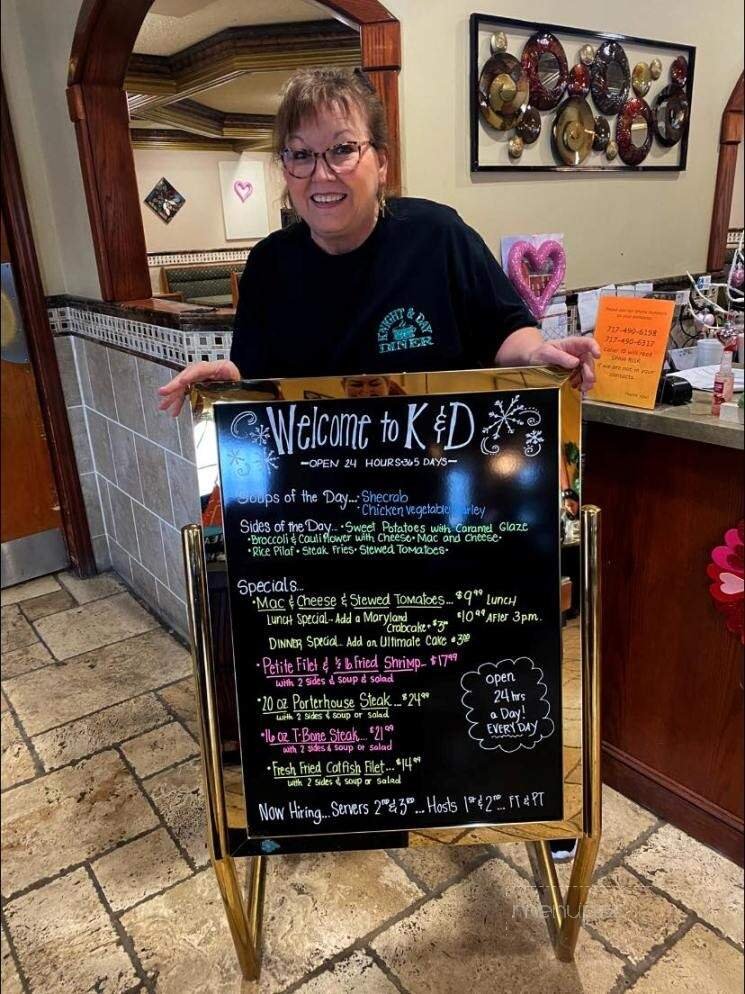 KNIGHT & DAY
DINER
717-490-6158
717-490-6317
Caller ID will read
if we are not in your
contacts.
Thank you!
Welcome to K & D
-OPEN 24 HOURS•365 DAYS-
Soups of the Day...•Shecrab
•Chicken vegetable Barley
Sides of the Day...•Sweet Potatoes with Caramel Glaze
•Broccoli & Cauliflower with Cheese•Mac and Cheese•
•Rice Pilaf•Steak Fries•Stewed Tomatoes•
Specials...
•Mac & Cheese & Stewed Tomatoes... $9⁹⁹ Lunch
Lunch Special..Add a Maryland $10⁹⁹ After 3pm.
Crabcake•$3⁰⁰
Dinner Special.. Add an Ultimate Cake •3⁰⁰
•Petite Filet & ½ lb Fried Shrimp..$17⁹⁹
with 2 sides & soup & salad
•20 oz Porterhouse Steak...$24⁹⁹
with 2 sides & soup or salad
•16 oz T-Bone Steak... $21⁹⁹
with 2 sides & soup or salad
•Fresh Fried Catfish Filet...$14⁹⁹
with 2 sides & soup or salad
open
24 hrs
a Day!
EVERYDAY
Now Hiring... Servers 2ⁿᵈ & 3ʳᵈ... Hosts 1ˢᵗ & 2ⁿᵈ... FT & PT
menupix